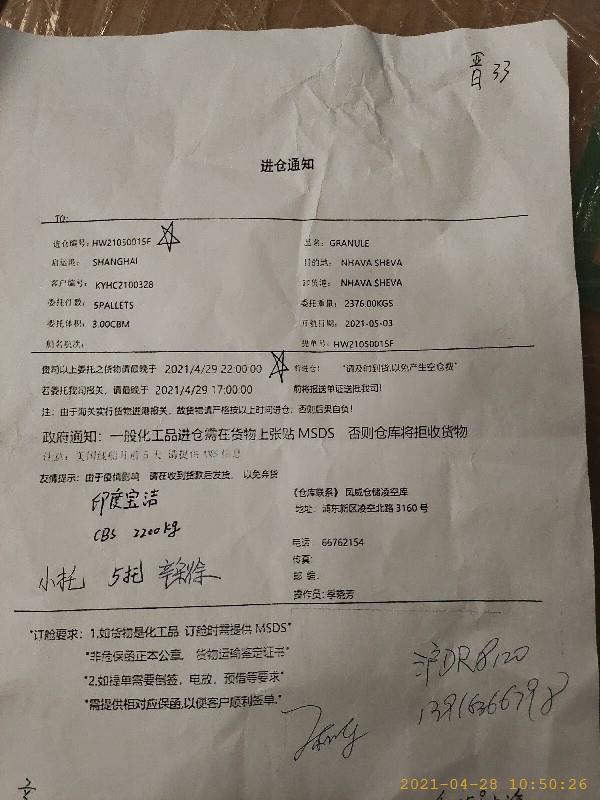 33
进仓通知
TO:
进仓编号: HW21050015F
品名: GRANULE
启运港: SHANGHAI
目的地: NHAVA SHEVA
客户编号: KYHC2100328
卸货港: NHAVA SHEVA
委托件数: 5PALLETS
委托重量: 2376.00KGS
委托体积: 3.00CBM
开航日期: 2021-05-03
船名航次:
提单号: HW21050015F
贵司以上委托之货物请最晚于 2021/4/29 22:00:00 前进仓! "请及时到货,以免产生空仓费"
若委托我司报关, 请最晚于 2021/4/29 17:00:00 前将报送单证送抵我司!
注: 由于海关实行货物进港报关, 故货物请严格按以上时间进仓, 否则后果自负!
政府通知: 一般化工品进仓需在货物上张贴 MSDS 否则仓库将拒收货物
注意: 美国线船开前5天 请提供 AMS 信息
友情提示: 由于疫情影响 请在收到货款后发货, 以免弃货
印度宝洁
CBS 2200kg
小托 5托
《仓库联系》 凤威仓储凌空库
地址: 浦东新区凌空北路 3160 号
电话 66762154
传真:
邮编:
操作员: 季晓芳
"订舱要求: 1,如货物是化工品 订舱时需提供 MSDS"
"非危保函正本公章, 货物运输鉴定证书"
"2,如提单需要倒签, 电放, 预借等要求"
"需提供相对应保函,以便客户顺利签单."
沪DR8120
13916366798
2021-04-28 10:50:26